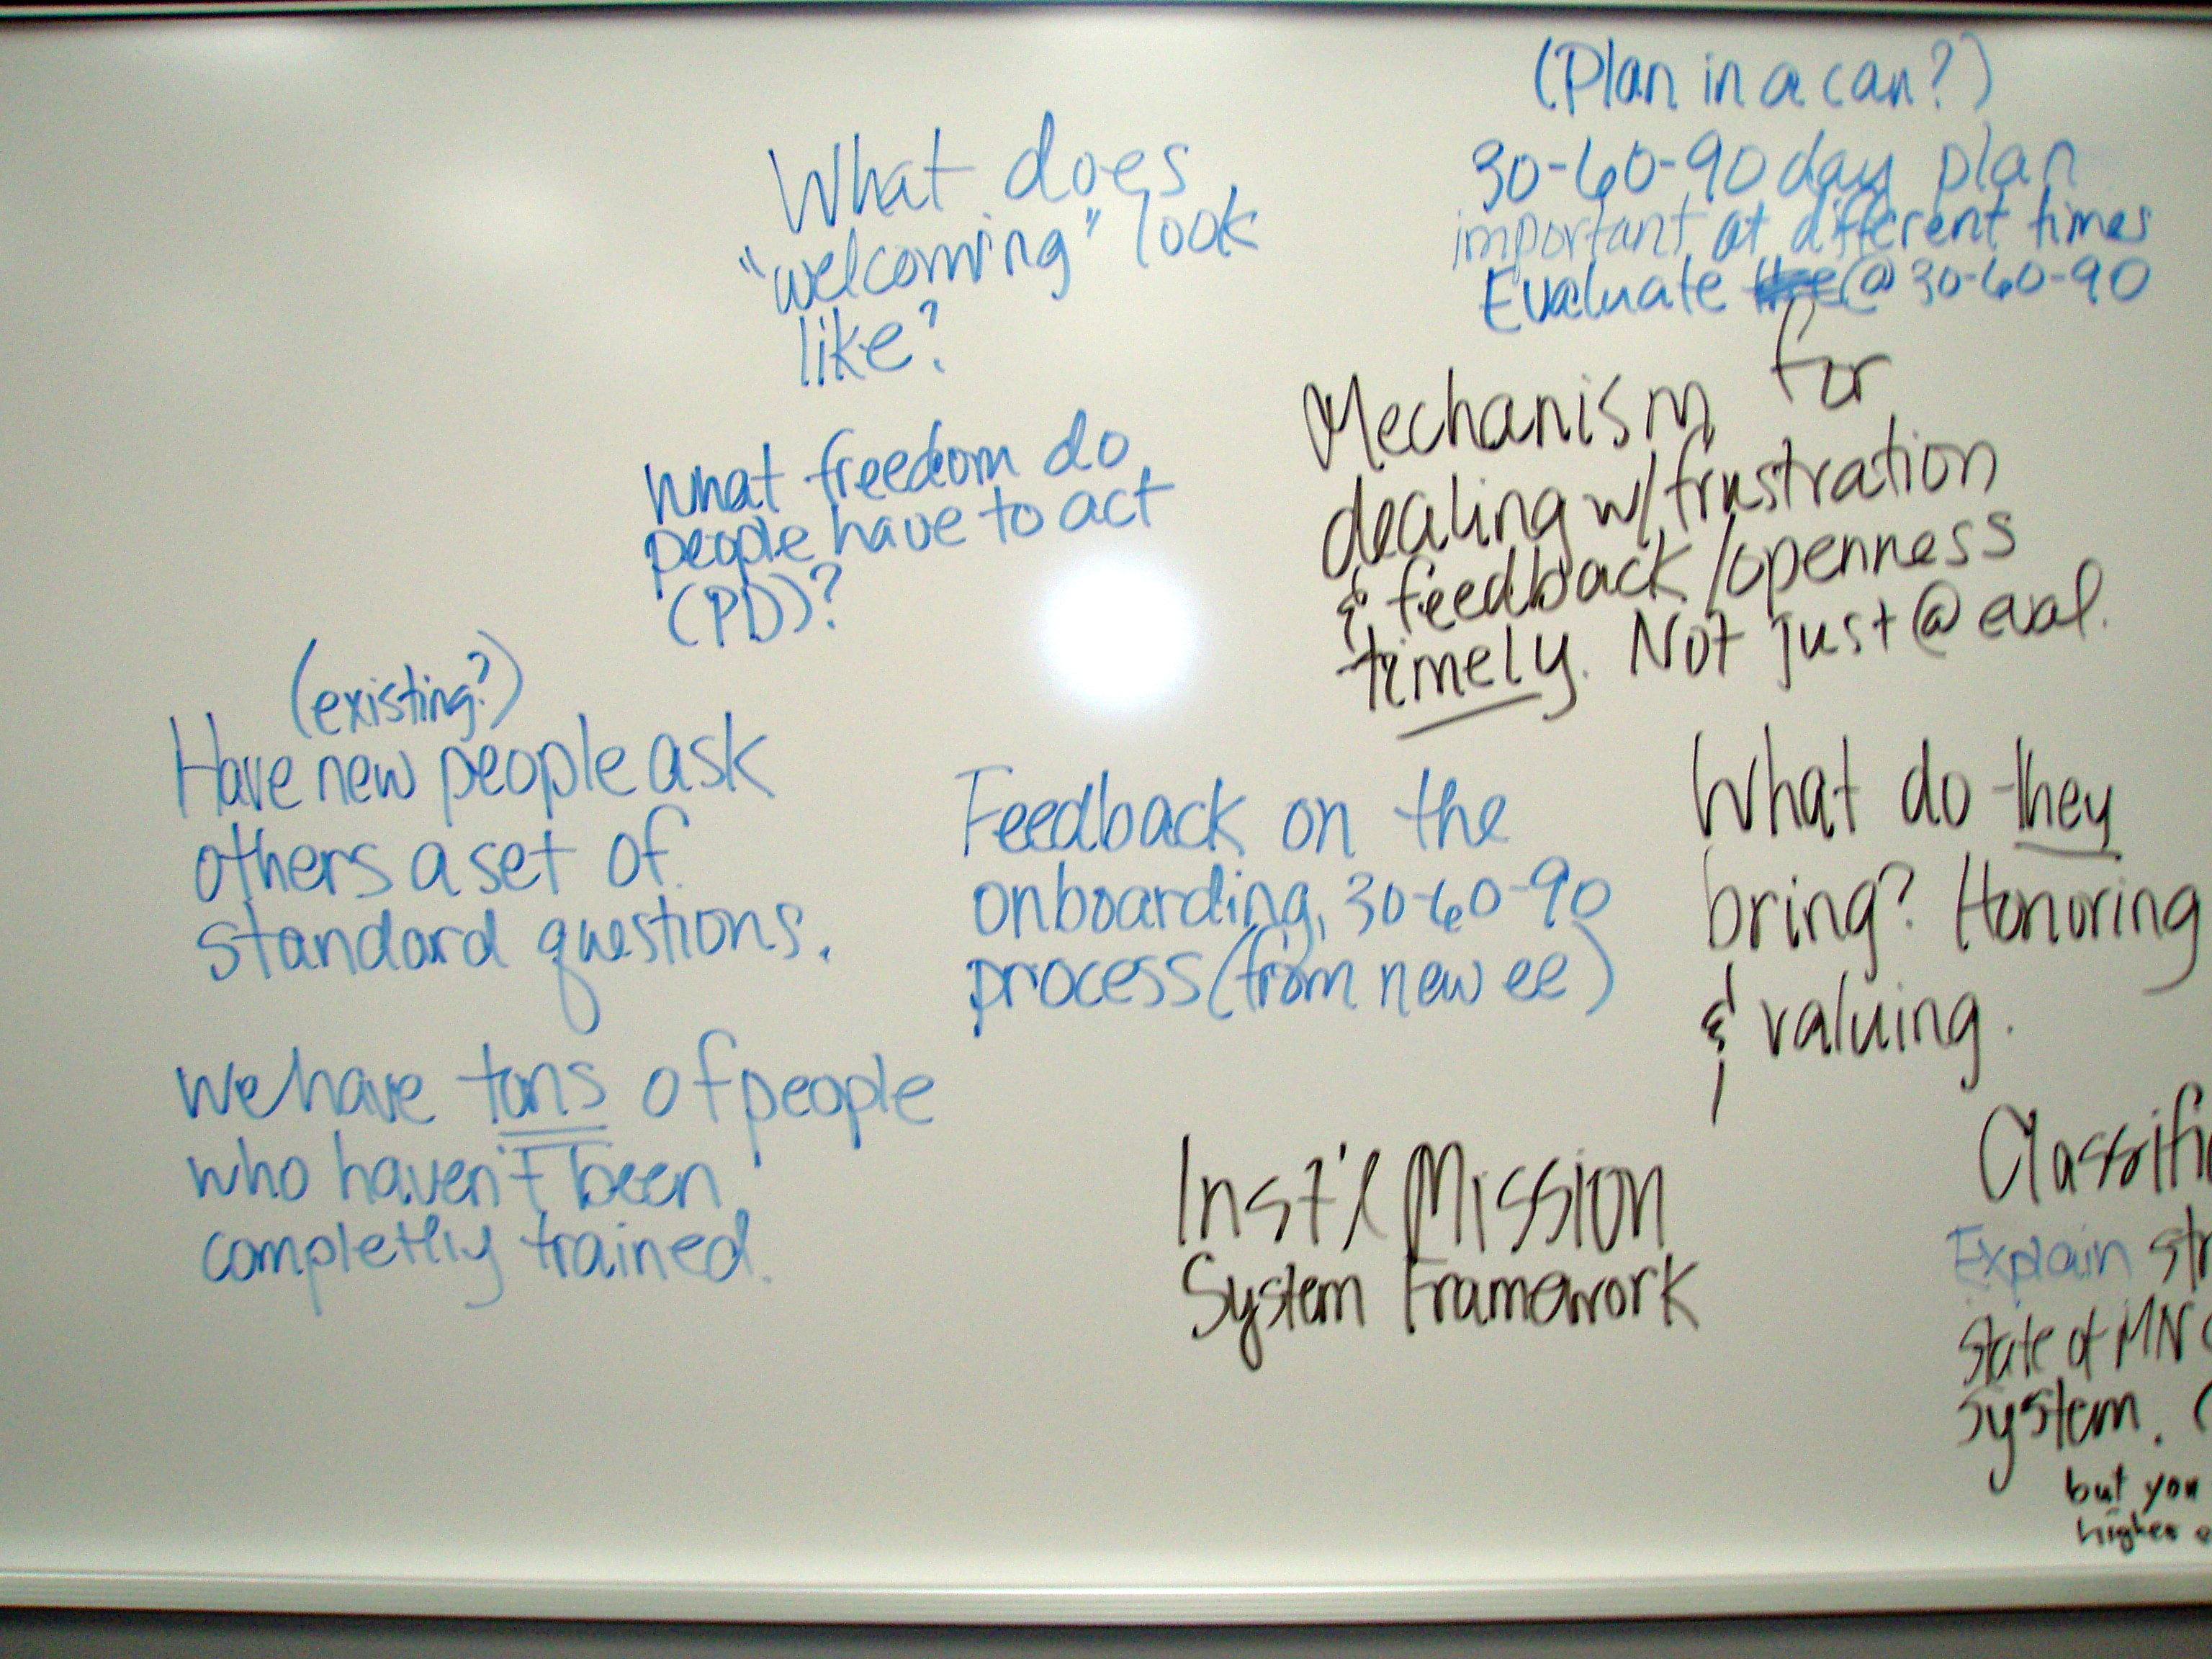 (Plan in a can?)
30-60-90 day plan
important at different times
Evaluate @ 30-60-90
What does
"welcoming" look
like?
Mechanism for
dealing w/ frustration
& feedback/openness
timely. Not just @ eval.
What freedom do
people have to act
(PD)?
(existing?)
Have new people ask
others a set of
standard questions.
Feedback on the
onboarding, 30-60-90
process (from new ee)
What do they
bring? Honoring
& valuing.
We have tons of people
who haven't been
completly trained.
Inst'l Mission
System Framework
Classifi
Explain str
State of MN
system. (
but you
higher